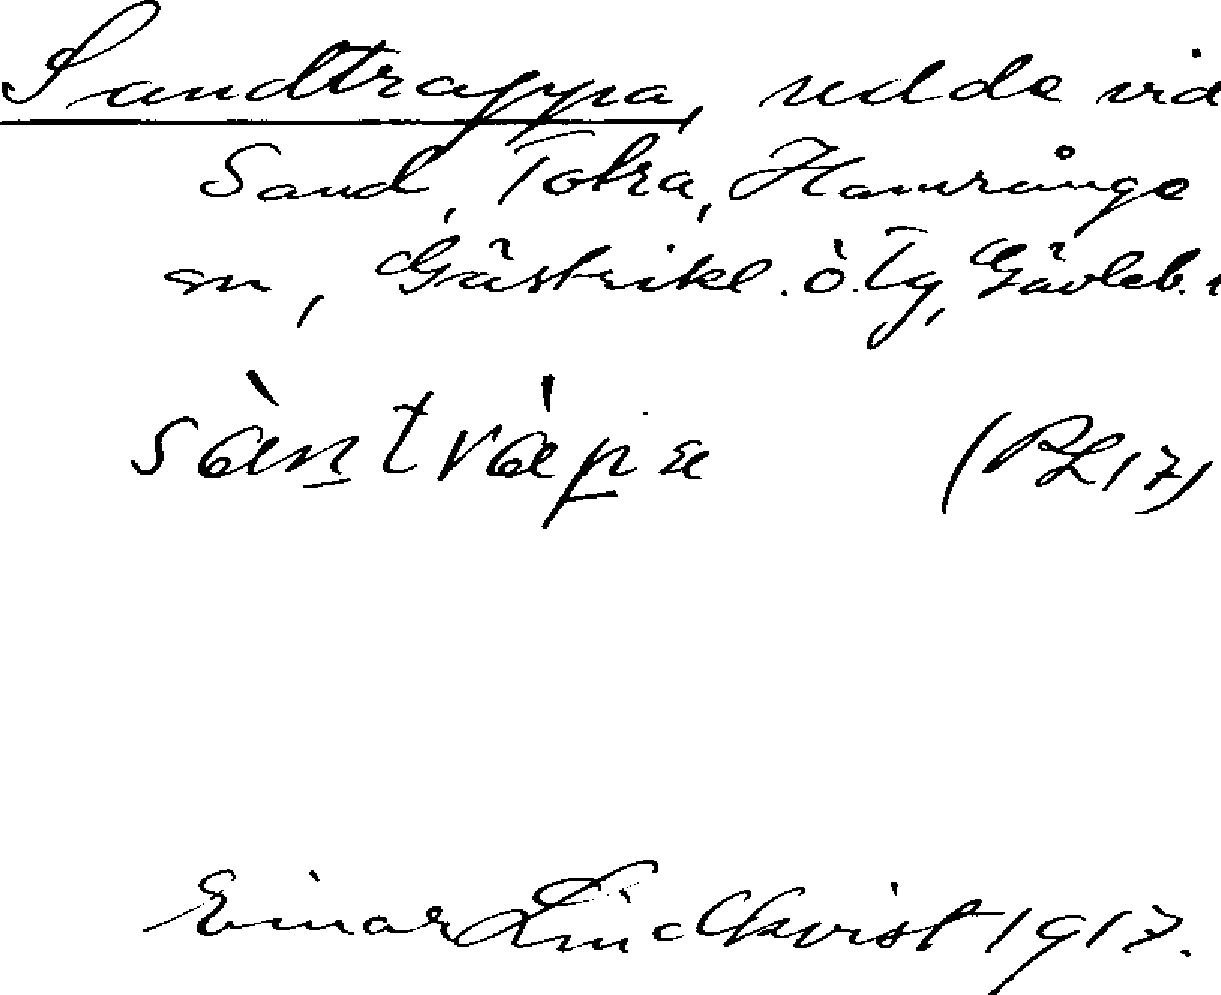 Sandtrappa, udde vid
Sand, Totra, Hamrånge
sn, Gästrikl. ö. Tg, Gävleb.
sàntrápa (BL17)
Einar Lindkvist 1917.